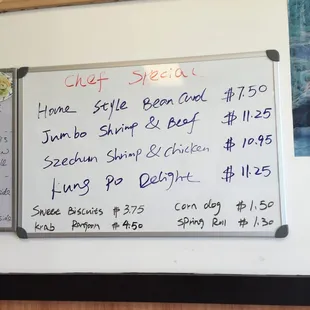 Chef Special
Home Style Bean Curd $7.50
Jumbo Shrimp & Beef $11.25
Szechun Shrimp & Chicken $10.95
Kung Po Delight $11.25
Sweet Biscuits $3.75 Corn dog $1.50
Krab Rangoon $4.50 Spring Roll $1.30